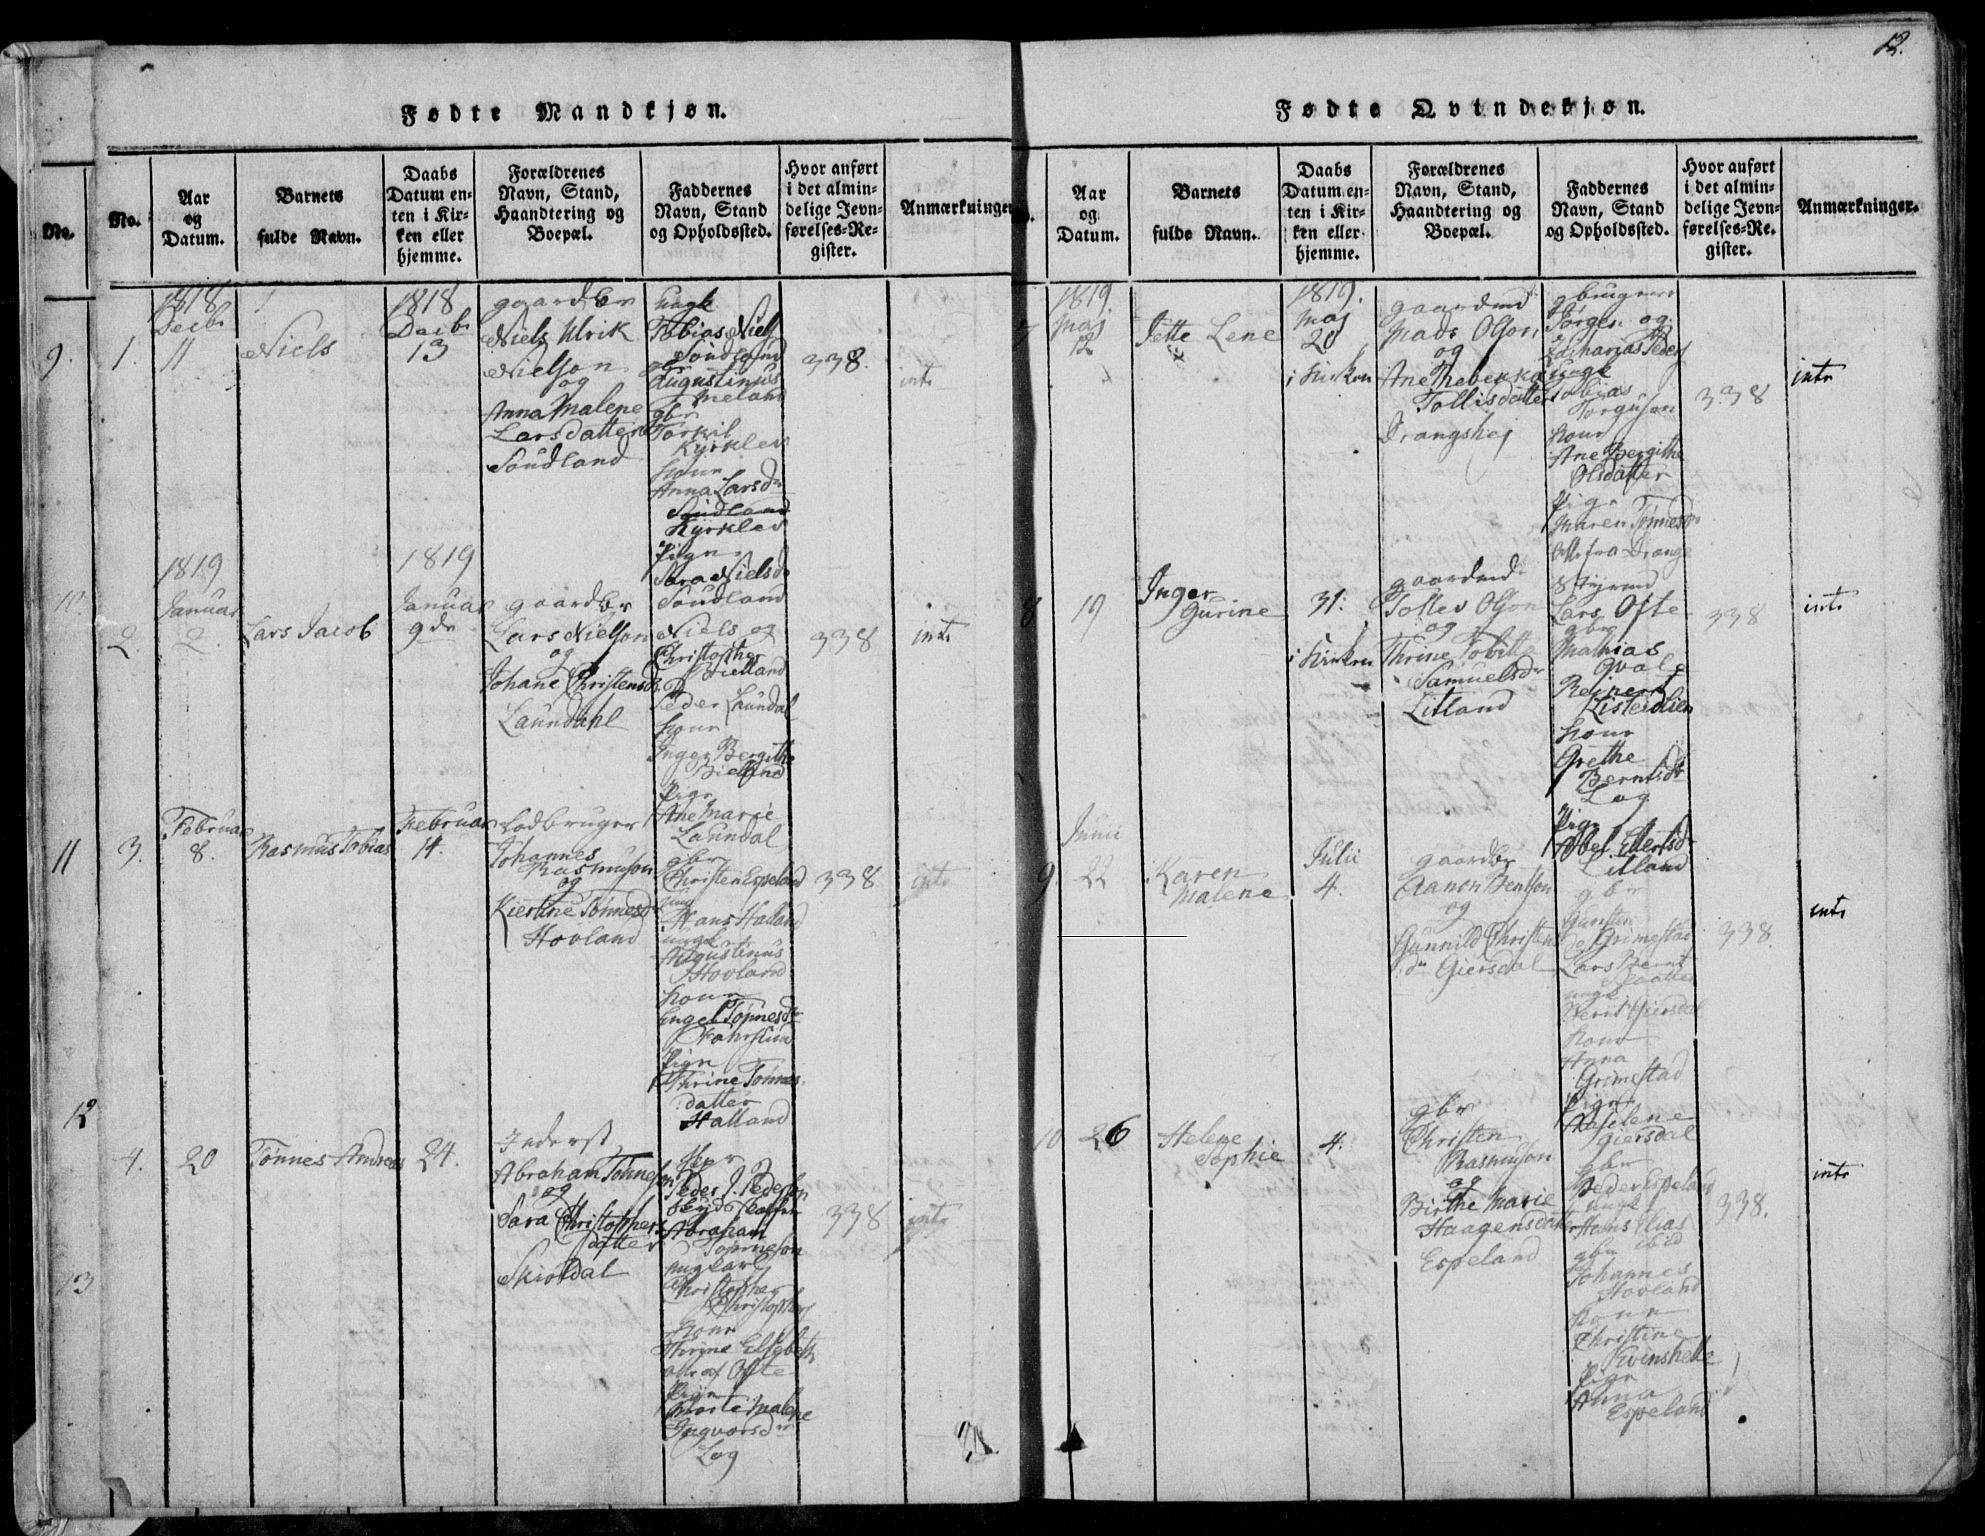 12.
Fødte Mandkjøn.
No.
No.
Aar
og
Datum.
Barnets
fulde Navn.
Daabs
Datum en-
ten i Kir-
ken eller
hjemme.
Forældrenes
Navn, Stand,
Haandtering og
Boepæl.
Faddernes
Navn, Stand
og Opholdssted.
Hvor anført
i det almin-
delige Jevn-
førelses-Re-
gister.
Anmærkninger
9.
1.
1818
Decbr
11
Niels
1818
Decbr
13
gaardbr
Niels Ulrik
Nielson
og
Anna Malene
Larsdatter
Soudland
Ungk
Tobias Niels
Soudland
gbr
Augustinus
Meland
gbr
Torkil
Kyrklev
Kone
Anna Larsdr
Soudland
Kyrklev
Pige
Sara Nielsdr
Soudland
338.
intr
10.
2.
1819
Januar
2.
Lars Jacob
1819
Januar
9de
gaardbr
Lars Nielson
og
Johane Christensdr
Laundahl
Niels og
Christopher
Bielland
Peder Laundal
Kone
Inger Bergithe
Bielland
Pige
Ane Marie
Laundal
338
intr
11
3.
Februar
8.
Rasmus Tobias
Februar
14.
Jodbruger
Johannes
Rasmuson
og
Kierstine Tønnesdr
Hovland
gbr
Christen Espeland
Hans Halland
ungk
Augustinus
Hovland
Kone
Engel Tønnesdr
Pige
Thrine Tønnes
datter
Halland
338
intr
12
4.
20
Tønnes Andreas
24.
Inderst
Abraham Tønneson
og
Sara Christophers
datter
Skioldal
Peder J. Pederson
Abraham
Tønneson
Christopher
Christophers
Kone
Thrine Elsebeth
Ofte
Pige
Marte Malene
Ingvorsdr
Log
338
intr
13
Fødte Qvindekjøn.
Aar
og
Datum.
Barnets
fulde Navn.
Daabs
Datum en-
ten i Kir-
ken eller
hjemme.
Forældrenes
Navn, Stand,
Haandtering og
Boepæl.
Faddernes
Navn, Stand
og Opholdssted.
Hvor anført
i det almin-
delige Jevn-
førelses-Re-
gister.
Anmærkninger.
7
1819
Maj
12
Jette Lene
1819.
Maj
20
i Kirken
gaardmd
Mads Olson
og
Ane Thebekka
Tollisdatter
Drangshej
gbrugere
Torger og
Zacharias Peders
Ungk
Tobias
Torguson
Kone
Ane Bergithe
Olsdatter
Pige
Maren Tønnesdr
alle fra Drange
338
intr
8
19
Inger
Gurine
31.
i Kirken
gaardmd
Tollev Olson
og
Thrine Tobitta
Samuelsdr
Litland
Styrmd
Lars Ofte
gbr
Mathias
Qvale
Reinert
Listeidlien
Kone
Grethe
Berntsdr
Log
Pige
Abel Ellertsdr
Litland
338
intr
9.
Junii
22
Karen
Malene
Julii
4.
gaardbr
Aanen Bentson
og
Gunnild Christens
dr Giersdal
gbr
Gunsten
Grimestad
Lars Bernt
ungk
Bernt Giersdal
Kone
Anna
Grimestad
Pige
Helene
Giersdal
338.
intr
10
26
Helene
Sophie
4.
gbr
Christen
Rasmuson
og
Birthe Marie
Haagensdatter
Espeland
gbr
Peder Espeland
ungk
Hans Elias
gbr ibid
Johannes
Hovland
Kone
Christine
Kvinshelle
Pige
Anna
Espeland
338.
intr